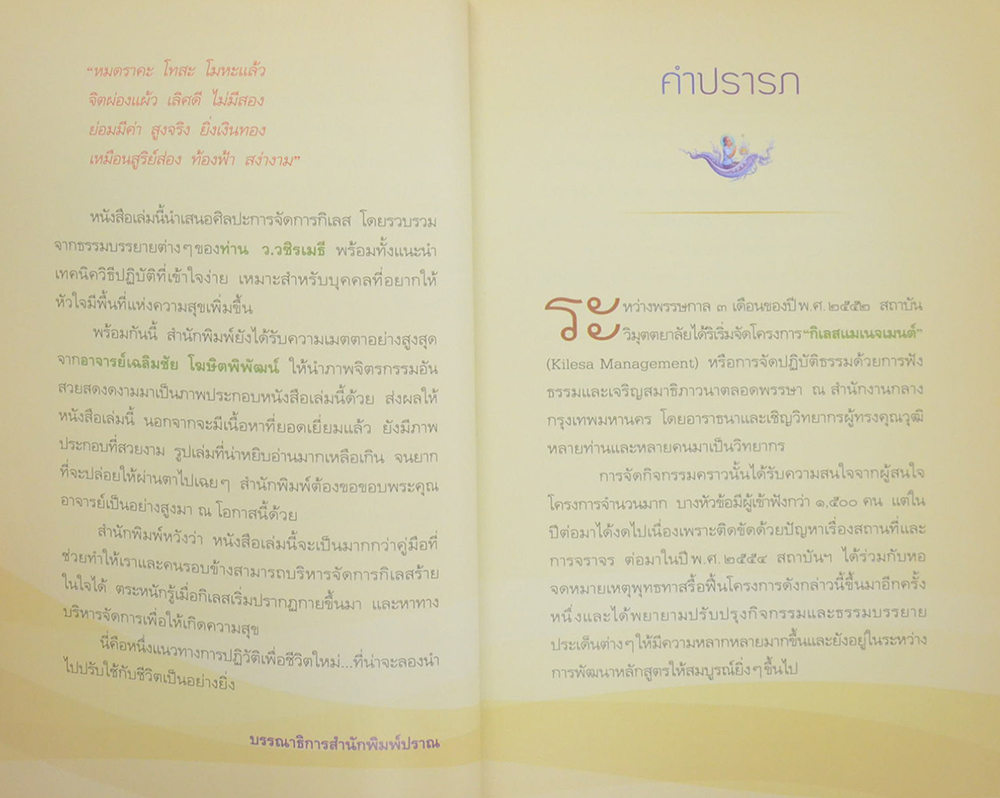 “หมดราคะ โทสะ โมหะแล้ว
จิตผ่องแผ้ว เลิศดี ไม่มีสอง
ย่อมมีค่า สูงจริง ยิ่งเงินทอง
เหมือนสูริย์ส่อง ท้องฟ้า สง่างาม”
หนังสือเล่มนี้นำเสนอศิลปะการจัดการกิเลส โดยรวบรวม
จากธรรมบรรยายต่างๆของท่าน ว.วชิรเมธี พร้อมทั้งแนะนำ
เทคนิควิธีปฏิบัติที่เข้าใจง่าย เหมาะสำหรับบุคคลที่อยากให้
หัวใจมีพื้นที่แห่งความสุขเพิ่มขึ้น
พร้อมกันนี้ สำนักพิมพ์ยังได้รับความเมตตาอย่างสูงสุด
จากอาจารย์เฉลิมชัย โฆษิตพิพัฒน์ ให้นำภาพจิตรกรรมอัน
สวยสดงดงามมาเป็นภาพประกอบหนังสือเล่มนี้ด้วย ส่งผลให้
หนังสือเล่มนี้ นอกจากจะมีเนื้อหาที่ยอดเยี่ยมแล้ว ยังมีภาพ
ประกอบที่สวยงาม รูปเล่มที่น่าหยิบอ่านมากเหลือเกิน จนยาก
ที่จะปล่อยให้ผ่านตาไปเฉยๆ สำนักพิมพ์ต้องขอขอบพระคุณ
อาจารย์เป็นอย่างสูงมา ณ โอกาสนี้ด้วย
สำนักพิมพ์หวังว่า หนังสือเล่มนี้จะเป็นมากกว่าคู่มือที่
ช่วยทำให้เราและคนรอบข้างสามารถบริหารจัดการกิเลสร้าย
ในใจได้ ตระหนักรู้เมื่อกิเลสเริ่มปรากฏกายขึ้นมา และหาทาง
บริหารจัดการเพื่อให้เกิดความสุข
นี่คือหนึ่งแนวทางการปฏิวัติเพื่อชีวิตใหม่...ที่น่าจะลองนำ
ไปปรับใช้กับชีวิตเป็นอย่างยิ่ง
บรรณาธิการสำนักพิมพ์ปราณ
คำปรารภ
ระหว่างพรรษกาล ๓ เดือนของปีพ.ศ.๒๕๕๒ สถาบัน
วิมุตตยาลัยได้ริเริ่มจัดโครงการ“กิเลสแมเนจเมนต์”
(Kilesa Management) หรือการจัดปฏิบัติธรรมด้วยการฟัง
ธรรมและเจริญสมาธิภาวนาตลอดพรรษา ณ สำนักงานกลาง
กรุงเทพมหานคร โดยอาราธนาและเชิญวิทยากรผู้ทรงคุณวุฒิ
หลายท่านและหลายคนมาเป็นวิทยากร
การจัดกิจกรรมคราวนั้นได้รับความสนใจจากผู้สนใจ
โครงการจำนวนมาก บางหัวข้อมีผู้เข้าฟังกว่า ๑,๕๐๐ คน แต่ใน
ปีต่อมาได้งดไปเนื่องเพราะติดขัดด้วยปัญหาเรื่องสถานที่และ
การจราจร ต่อมาในปีพ.ศ.๒๕๕๔ สถาบันฯ ได้ร่วมกับหอ
จดหมายเหตุพุทธทาสรื้อฟื้นโครงการดังกล่าวนี้ขึ้นมาอีกครั้ง
หนึ่งและได้พยายามปรับปรุงกิจกรรมและธรรมบรรยาย
ประเด็นต่างๆให้มีความหลากหลายมากขึ้นและยังอยู่ในระหว่าง
การพัฒนาหลักสูตรให้สมบูรณ์ยิ่งๆขึ้นไป